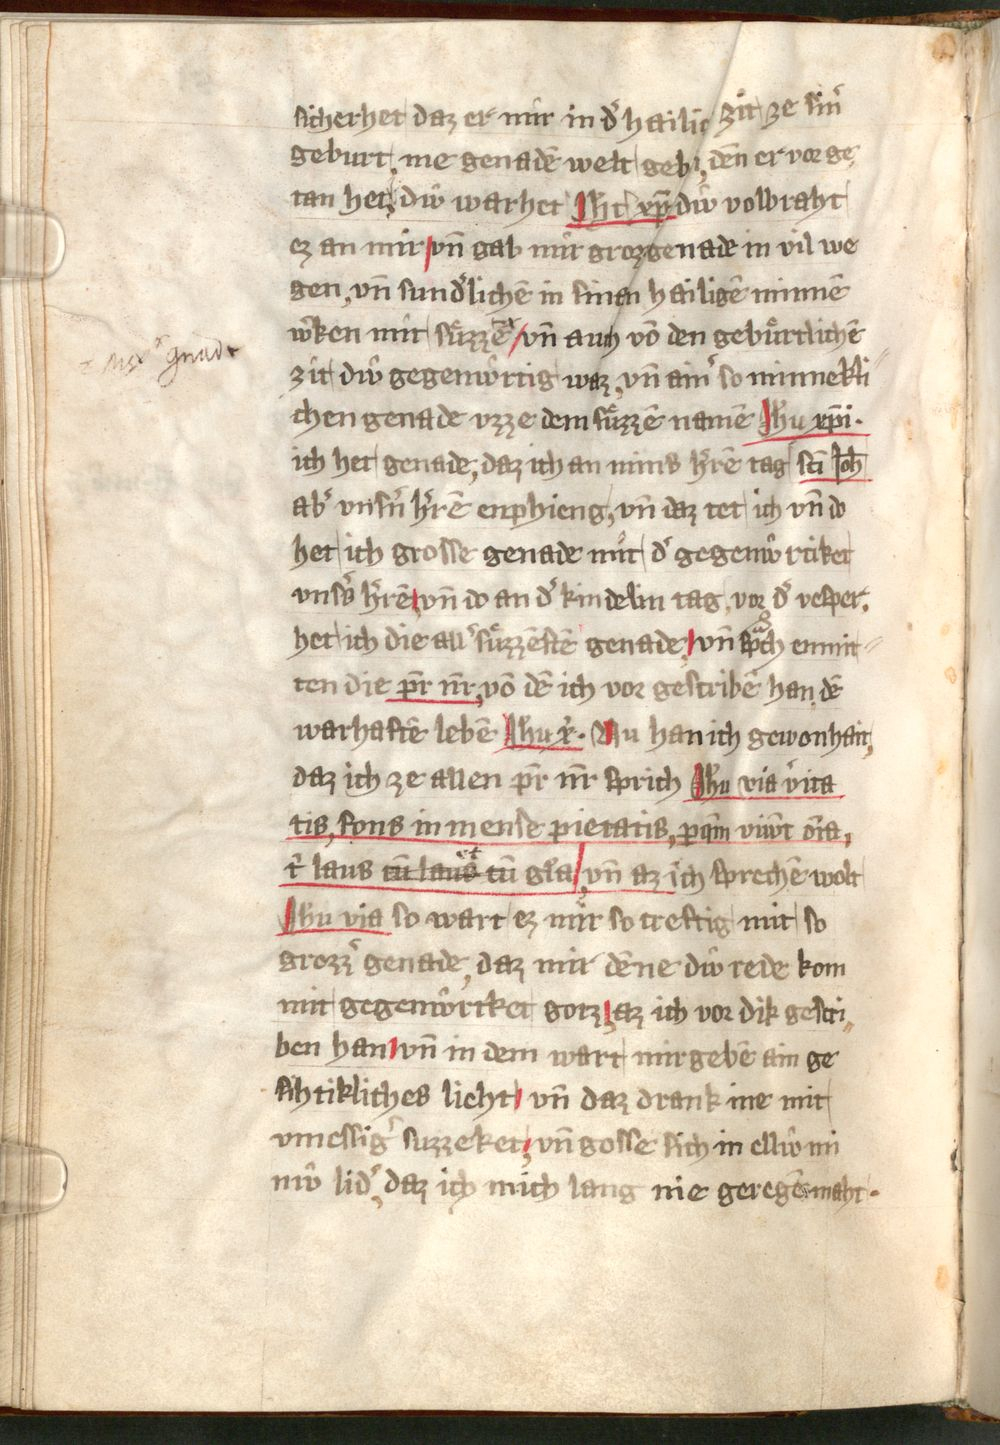 sicherhet daz er mir in dˀ hailig zit ze sinˀ
geburt, me genadē welt gebn, dēn er vor ge
tan het, diŵ warhet Jhc xp̄c diŵ volbraht
ez an mir, vn̄ gab mir groz genade in vil we
gen, vn̄ sundˀlichē in sinen hailigē minnē
wˀken mit sůzzē, vn̄ auch vō den gebůrtlichē
zit diŵ gegenŵrtig waz, vn̄ ainˀ so minnekli
chen genade vzze dem sůzzē namē Jhu xp̄i.
ich het genade, daz ich an mins hˀrē tag sc̄i Joh
abˀ vnsˀn hˀrē enphieng, vn̄ daz tet ich vn̄ do
het ich grosse genade mit dˀ gegenŵrtiket
vnsˀs hˀrē, vn̄ do an dˀ kindelin tag, vor dˀ vesper,
het ich die allˀ sůzzēstē genade, vn̄ sp̄ch enmit
ten die pr̄ nr̄, vō dē ich vor gescribē han, dē
warhaftē lebē Jhu xˀ. Nu han ich gewonhait,
daz ich ze allen pr̄ nr̄ sprich Jhu via vˀita
tis, fons inmense pietatis, p qm̄ viuv̄t oīa,
tˀ laus tū laus tū gl̄a, vn̄ az ich sprechē wolt
Jhu via so wart ez mir so creftig mit so
grozzˀ genade, daz mir dēne diŵ rede kom
mit gegenŵrtket gotz, az ich vor dik gescri
ben han, vn̄ in dem wart mir gebē ain ge
sihtikliches licht, vn̄ daz drank me mit
vmessigˀ suzzeket, vn̄ gosse sich in elliŵ mi
niŵ lidˀ, daz ich mich lang nie geregē maht.